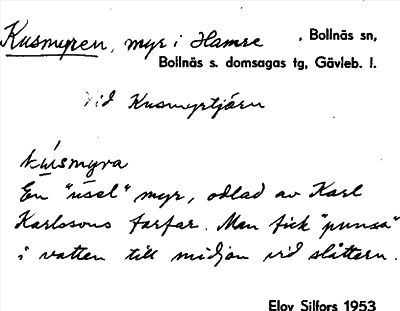 Kusmyren, myr i Hamre , Bollnäs sn,
Bollnäs s. domsagas tg, Gävleb. l.
Vid Kusmyrtjärn
kusmyra
En "usel" myr, odlad av Karl
Karlssons farfar. Man fick "pumsa"
i vatten till midjan vid slåttern.
Elov Silfors 1953